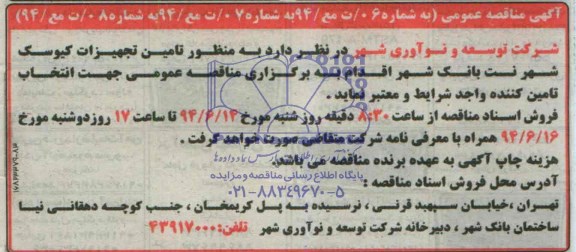 آگهی مناقصه عمومی (به شماره ۰۶/ت مع/۹۴به شماره۰۷/ت مع/۹۴به شماره۰۸/ت مع/۹۴)
شرکت توسعه و نوآوری شهر در نظر دارد به منظور تامین تجهیزات کیوسک
شهر نت بانک شهر اقدام به برگزاری مناقصه عمومی جهت انتخاب
تامین کننده واجد شرایط و معتبر نماید .
فروش اسناد مناقصه از ساعت ۸:۳۰ دقیقه روز شنبه مورخ ۹۴/۶/۱۴ تا ساعت ۱۷ روزدوشنبه مورخ
۹۴/۶/۱۶ همراه با معرفی نامه شرکت متقاضی صورت خواهد گرفت .
هزینه چاپ آگهی به عهده برنده مناقصه می باشد.
پایگاه اطلاع رسانی مناقصه و مزایده
آدرس محل فروش اسناد مناقصه :
۰۲۱-۸۸۳۴۹۶۷۰-۵
تهران ،خیابان سپهبد قرنی ، نرسیده به پل کریمخان ، جنب کوچه دهقانی نیا
ساختمان بانک شهر ، دبیرخانه شرکت توسعه و نوآوری شهر تلفن:۴۳۹۱۷۰۰۰